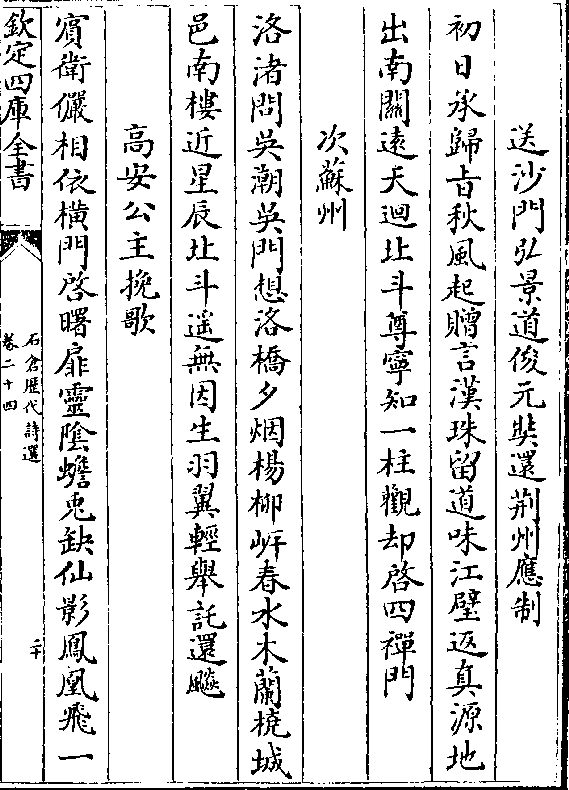 送沙門弘景道俊元奘還荆州應制
初日承歸旨秋風起贈言漢珠留道味江璧返真源地
出南關遠天迴北斗尊寧知一柱觀却啓四禪門
次蘇州
洛渚問吳潮吳門想洛橋夕烟楊柳岍春水木蘭橈城
邑南樓近星辰北斗遥無因生羽翼輕舉託還飈
高安公主挽歌
賓衛儼相依橫門啓曙扉靈陰蟾兎缺仙影鳳凰飛一
欽定四庫全書
石倉歷代詩選
卷二十四
二十